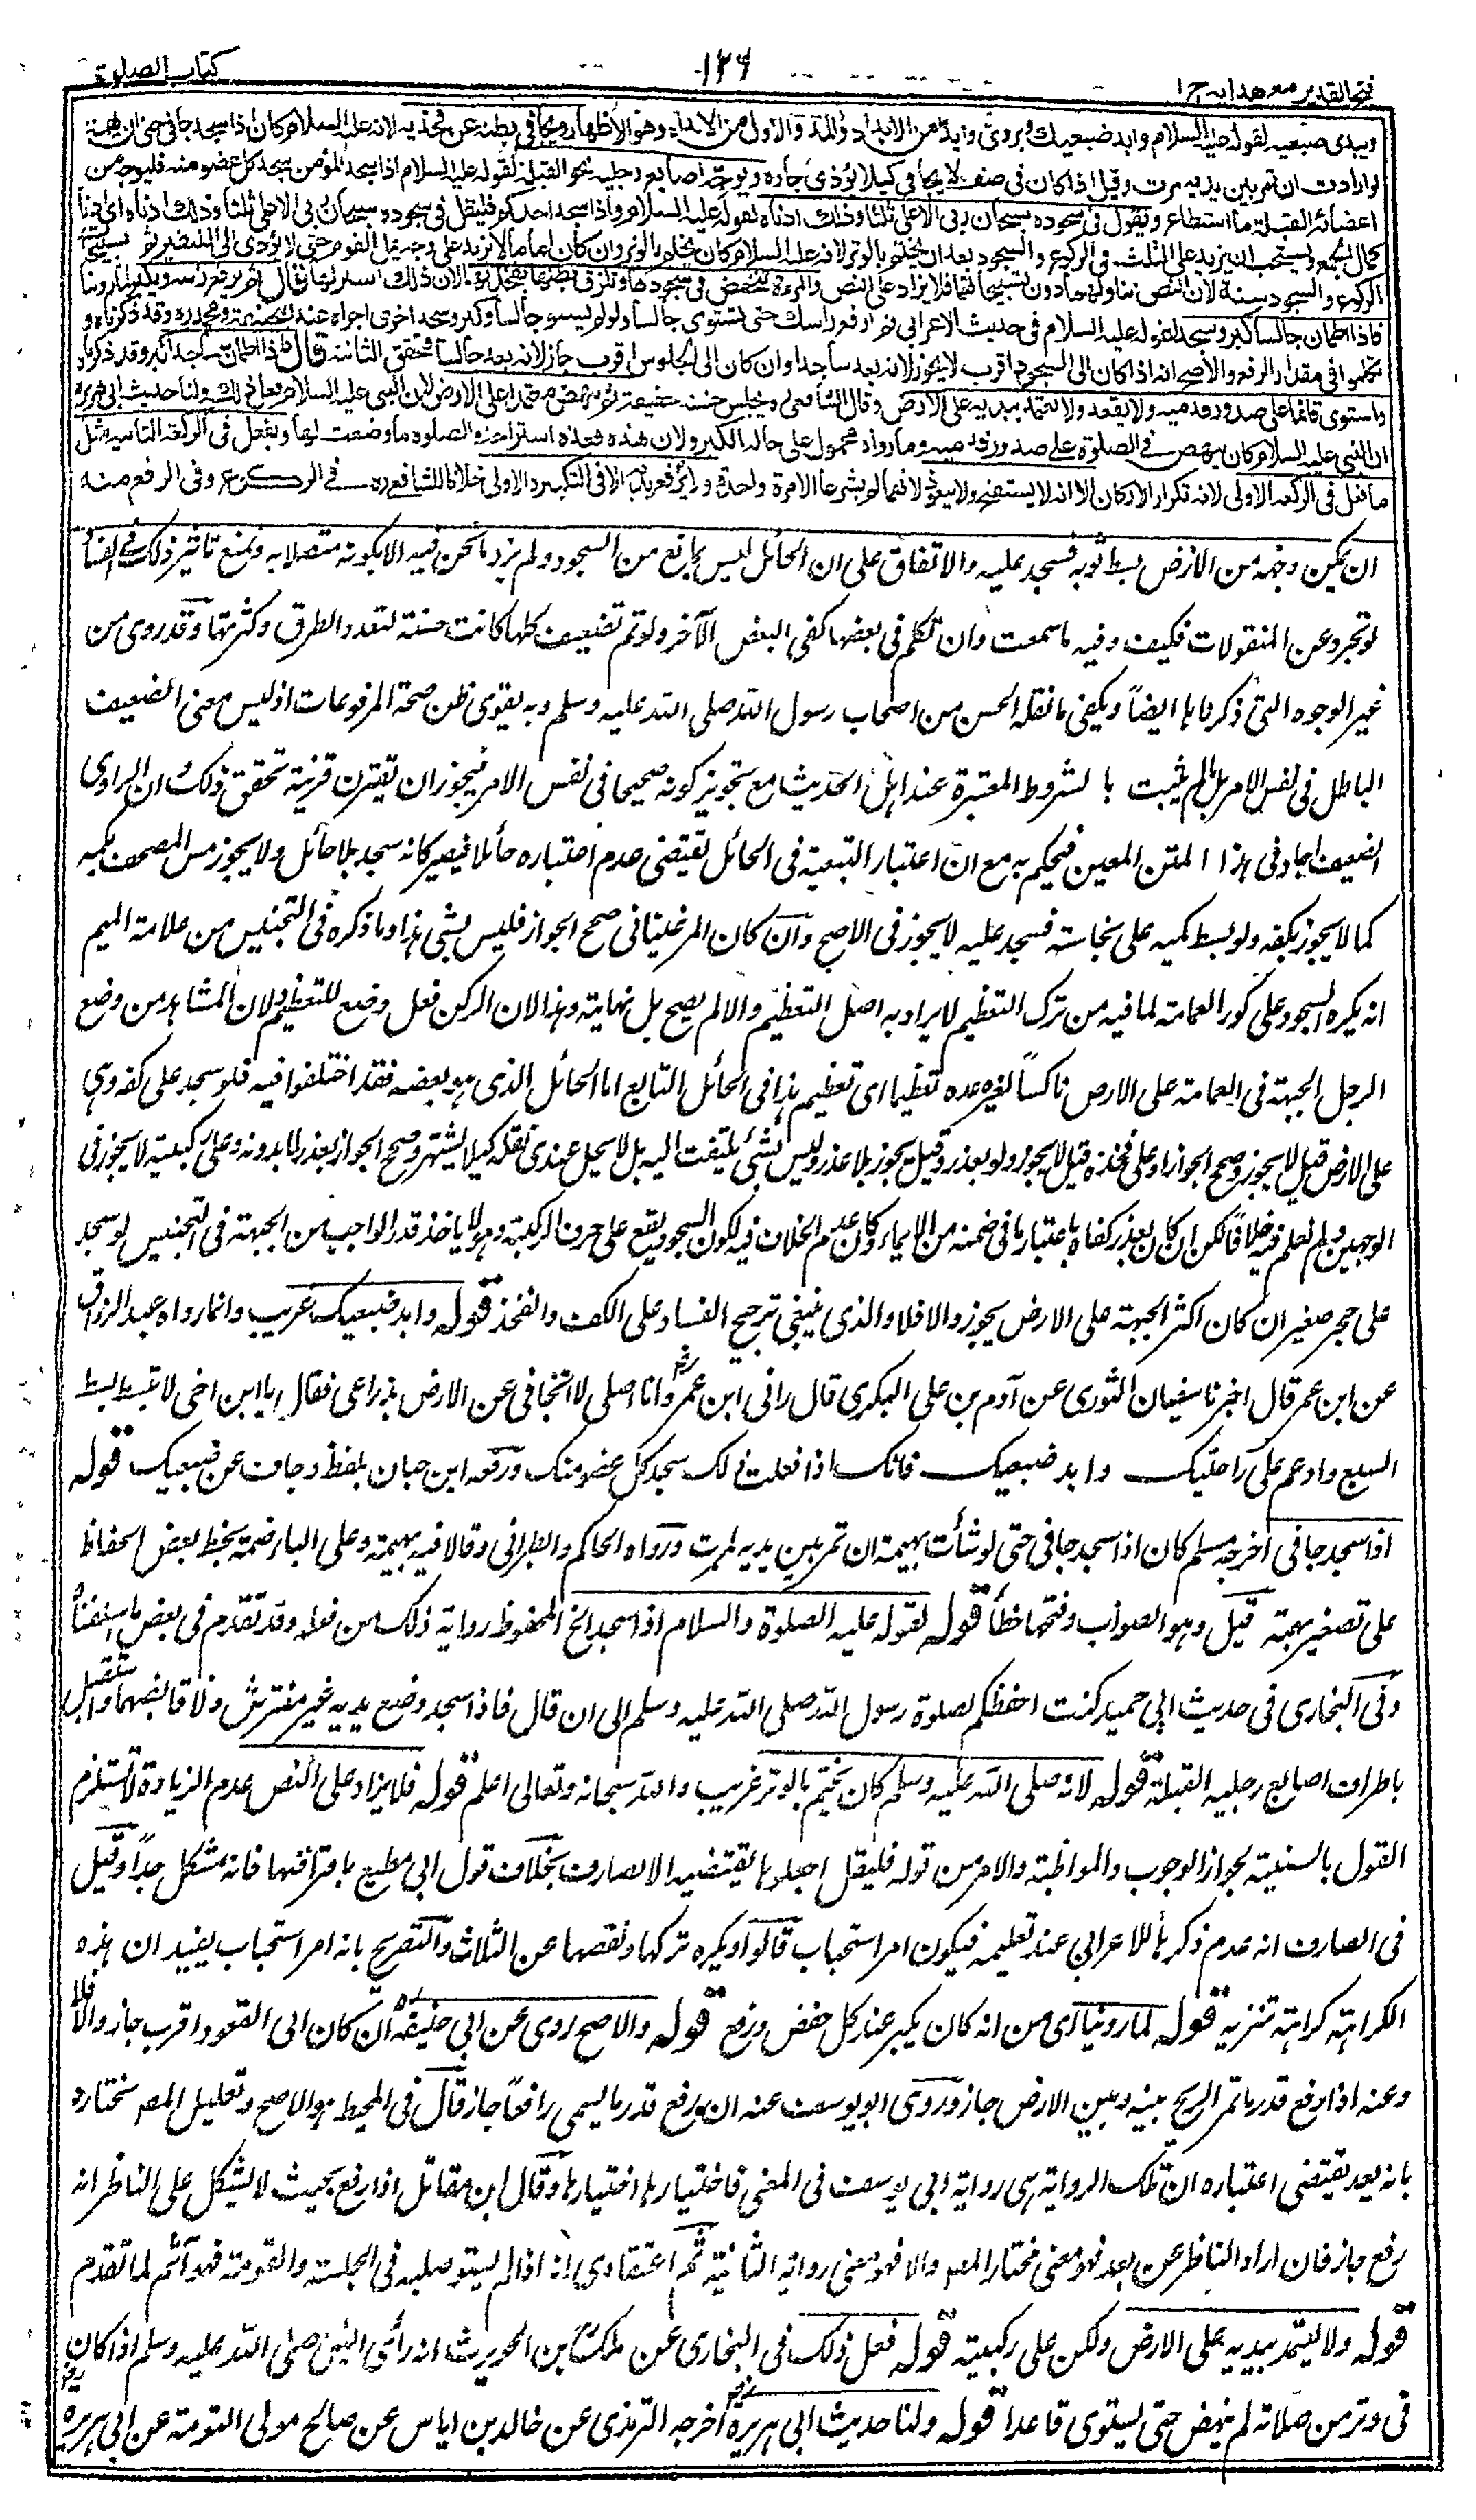 فتح القدير مع هدايه ج ١
١٢٦
كتاب الصلوة
ويبدى ضبعيه لقوله عليه السلام وابد ضبعيك ويروى وابد من الابداد وهو المد والاول من الابداء وهو الاظهار ويجافى بطنه عن فخذيه لانه عليه السلام كان اذا سجد جافى حتى ان بهمة
لو ارادت ان تمر بين يديه مرت وقيل اذا كان فى صف لا يجافى كيلا يؤذى جاره ويوجه اصابع رجليه نحو القبلة لقوله عليه السلام اذا سجد المؤمن سجد كل عضو منه فليوجه من
اعضائه القبلة ما استطاع ويقول فى سجوده سبحان ربى الاعلى ثلثا وذلك ادناه لقوله عليه السلام واذا سجد احدكم فليقل فى سجوده سبحان ربى الاعلى ثلثا وذلك ادناه اى ادنى
كمال الجمع ويستحب ان يزيد على الثلث فى الركوع والسجود بعد ان يختم بالوتر لانه عليه السلام كان يختم بالوتر وان كان اماما لا يزيد على وجه يمل القوم حتى لا يؤدى الى التنفير ثم تسبيحات
الركوع والسجود سنة لان النص تناولهما دون تسبيحاتهما فلا يزاد على النص والمرأة تنخفض فى سجودها وتلزق بطنها بفخذيها لان ذلك استر لها قال ثم يرفع رأسه ويكبر لما روينا
فاذا اطمأن جالسا كبر وسجد لقوله عليه السلام فى حديث الاعرابى ثم ارفع رأسك حتى تستوى جالسا ولو لم يستو جالسا وكبر وسجد اخرى اجزاه عند ابى حنيفة ومحمد ره وقد ذكرناه و
تكلموا فى مقدار الرفع والاصح انه اذا كان الى السجود اقرب لا يجوز لانه يعد ساجدا وان كان الى الجلوس اقرب جاز لانه يعد جالسا فتحقق الثانية قال فاذا اطمأن ساجدا كبر وقد ذكرناه
واستوى قائما على صدور قدميه ولا يقعد ولا يعتمد بيديه على الارض وقال الشافعى ره يجلس جلسة خفيفة ثم ينهض معتمدا على الارض لان النبى عليه السلام فعل ذلك ولنا حديث ابى هريرة
ان النبى عليه السلام كان ينهض فى الصلوة على صدور قدميه وما رواه محمول على حالة الكبر ولان هذه قعدة استراحة والصلوة ما وضعت لها ويفعل فى الركعة الثانية مثل
ما فعل فى الركعة الاولى لانه تكرار الاركان الا انه لا يستفتح ولا يتعوذ لانهما لم يشرعا الا مرة واحدة ولا يرفع يديه الا فى التكبيرة الاولى خلافا للشافعى ره فى الركوع وفى الرفع منه
ان يمكن وجهه من الارض بسط ثوبه فسجد عليه والاتفاق على ان الحائل ليس بمانع من السجود ولم يزد ما نحن فيه الا بكونه متصلا به ونمنع تاثير ذلك فى الفساد
لو تجرد عن المنقولات فكيف وفيه ما سمعت وان تكلم فى بعضها كفى البعض الآخر ولو تم تضعيف كلها كانت حسنة لتعدد الطرق وكثرتها وقد روى من
غير الوجوه التى ذكرناها ايضاً ويكفى ما نقله الحسن من اصحاب رسول الله صلى الله عليه وسلم وبه يقوى ظن صحة المرفوعات اذ ليس معنى الضعيف
الباطل فى نفس الامر بل ما لم يثبت بالشروط المعتبرة عند اهل الحديث مع تجويز كونه صحيحا فى نفس الامر فيجوز ان تقترن قرينة تحقق ذلك وان الراوى
الضعيف اجاد فى هذا المتن المعين فيحكم به مع ان اعتبار التبعية فى الحائل تقتضى عدم اعتباره حائلا فيصير كانه سجد بلا حائل ولا يجوز مس المصحف بكمه
كما لا يجوز بكفه ولو بسط كمه على نجاسة فسجد عليه لا يجوز فى الاصح وان كان المرغينانى صحح الجواز فليس بشئ هذا وما ذكره فى التجنيس من علامة الميم
انه يكره السجود على كور العمامة لما فيه من ترك التعظيم لا يراد به اصل التعظيم والا لم يصح بل نهايته وهذا لان الركن فعل وضع للتعظيم ولان المشاهد من وضع
الرجل الجبهة فى العمامة على الارض ناكساً لغيره عده تعظيما اى تعظيم هذا فى الحائل التابع اما الحائل الذى هو بعضه فقد اختلفوا فيه فلو سجد على كفه وهى
على الارض قيل لا يجوز وصحح الجواز او على فخذه قيل لا يجوز ولو بعذر وقيل يجوز بلا عذر وليس بشئ يلتفت اليه بل لا يحل عندى نقله كيلا يشتهر وصحح الجواز بعذر لا بدونه وعلى ركبتيه لا يجوز فى
الوجهين ولم نعلم فيه خلافا لكن ان كان بعذر كفاه باعتبار ما فى ضمنه من الايماء وكأن عدم الخلاف فيه لكون السجود يقع على حرف الركبة وهو لا ياخذ قدر الواجب من الجبهة فى التجنيس لو سجد
على حجر صغير ان كان اكثر الجبهة على الارض يجوز والا فلا والذى ينبغى ترجيح الفساد على الكف والفخذ قوله وابد ضبعيك غريب وانما رواه عبد الرزاق
عن ابن عمر قال اخبرنا سفيان الثورى عن آدم بن على البكرى قال رآنى ابن عمر رضـ وانا اصلى لا اتجافى عن الارض بذراعى فقال يا ابن اخى لا تبسط بسط
السبع وادعم على راحتيك وابد ضبعيك فانك اذا فعلت ذلك سجد كل عضو منك ورفعه ابن حبان بلفظ وجاف عن ضبعيك قوله
اذا سجد جافى اخرجه مسلم كان اذا سجد جافى حتى لو شأت بهيمة ان تمر بين يديه لمرت ورواه الحاكم والطبرانى وقالا فيه بهيمة وعلى الباء ضمة بخط بعض الحفاظ
على تصغير بهمة قيل وهو الصواب وفتحها خطأ قوله لقوله عليه الصلوة والسلام اذا سجد الخ المحفوظ رواية ذلك من فعله وقد تقدم فى بعض ما سقناه
وفى البخارى فى حديث ابى حميد كنت احفظكم لصلوة رسول الله صلى الله عليه وسلم الى ان قال فاذا سجد وضع يديه غير مفترش ولا قابضهما واستقبل
باطراف اصابع رجليه القبلة قوله لانه صلى الله عليه وسلم كان يختم بالوتر غريب والله سبحانه وتعالى اعلم قوله فلا يزاد على النص عدم الزيادة لا تستلزم
القول بالسنية لجواز الوجوب والمواظبة والامر من قوله فليقل اجعلوها يقتضيه الا لصارف بخلاف قول ابى مطيع بافتراضها فانه مشكل جداً وقيل
فى الصارف انه عدم ذكرها للاعرابى عند تعليمه فيكون امر استحباب قالوا ويكره تركها ونقصها عن الثلاث والتصريح بانه امر استحباب يفيد ان هذه
الكراهة كراهة تنزيه قوله لما روينا اى من انه كان يكبر عند كل خفض ورفع قوله والاصح روى عن ابى حنيفة ره ان كان الى القعود اقرب جاز والا فلا
وعنه اذا رفع قدر ما تمر الريح بينه وبين الارض جاز وروى ابو يوسف عنه ان رفع قدر ما يسمى رافعاً جاز قال فى المحيط هو الاصح وتعليل المصـ مختاره
بانه يعد يقتضى اعتباره ان تلك الرواية هى رواية ابى يوسف فى المعنى فاختيارها اختيارها وقال ابن مقاتل اذا رفع بحيث لا يشكل على الناظر انه
رفع جاز فان اراد الناظر عن بعد فهو معنى مختار المصـ والا فهو معنى رواية الثانية ثم اعتقادى انه اذا لم يستو صلبه فى الجلسة والقومة فهو آثم لما تقدم
قوله ولا يعتمد بيديه على الارض ولكن على ركبتيه قوله فعل ذلك فى البخارى عن مالك بن الحويرث انه رأى النبى صلى الله عليه وسلم اذا كان
فى وتر من صلاته لم ينهض حتى يستوى قاعدا قوله ولنا حديث ابى هريرة رضـ اخرجه الترمذى عن خالد بن اياس عن صالح مولى التومة عن ابى هريره رضـ